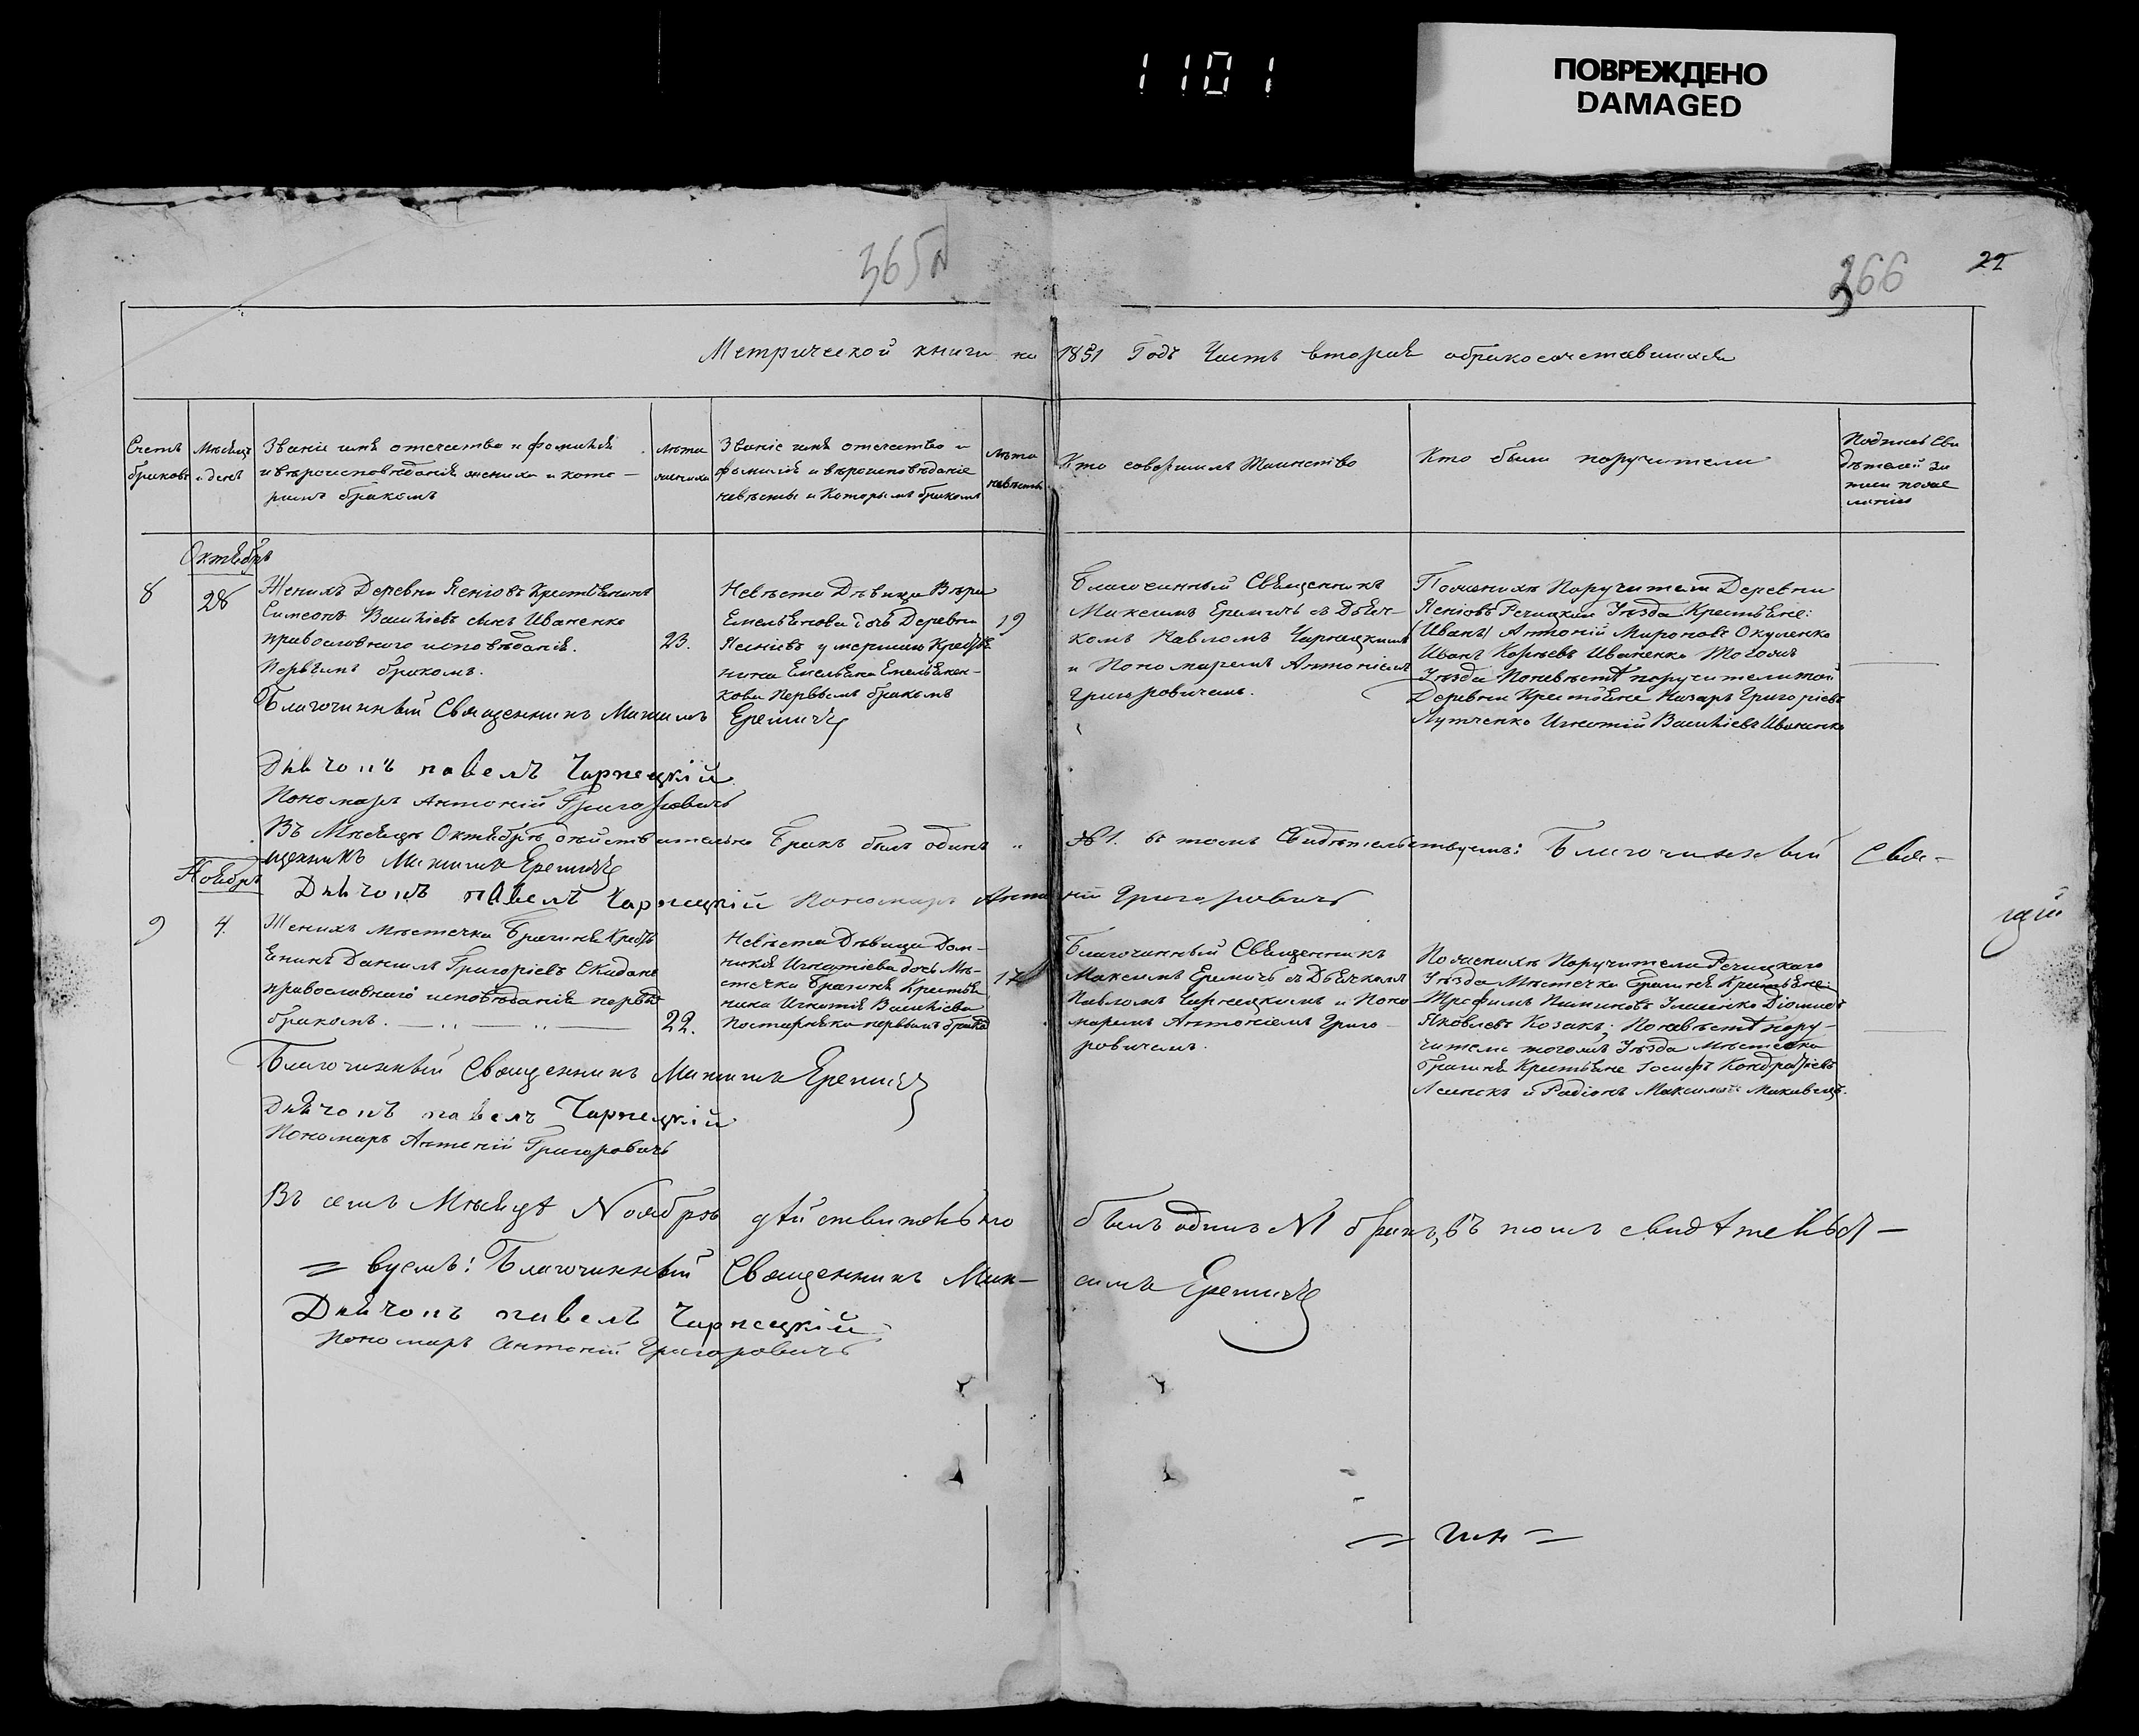 1101
ПОВРЕЖДЕНО
DAMAGED
365
366
22
Метрической книги на 1851 Годъ Часть вторая обракосочетавшихся
Счетъ браковъ
Мѣсяцъ и день
Званіе имя отечество и фамилія
и вѣроисповѣданіе жениха и кото-
рымъ бракомъ
лѣта жениха
Званіе имя отечество и
фамилія и вѣроисповѣданіе
невѣсты и Которымъ бракомъ
лѣта невѣсты
Кто совершилъ Таинство
Кто были поручители
Подпись сви
дѣтелей за
писи по же
ланію
Октябрь
8
28
Женихъ Деревни Ясіовъ Крестьянинъ
Симеонъ Василіевъ сынъ Иваненко
православного исповѣданія.
Первымъ бракомъ.
23.
Невѣста Дѣвица Вѣра
Емельянова дочь Деревни
умершаго Кресть
нина Емельяна Емельянен-
кова Первымъ бракомъ
19
Благочинный Священникъ
Максимъ Еремичъ съ Дьяч-
комъ Павломъ Чарнецкимъ
и Пономаремъ Антоніемъ
Григоровичемъ.
Поженихѣ Поручители Деревни
Речицкаго Уѣзда Крестьяне:
(Иванъ) Антоній Мироновъ Окуленко
Иванъ Карѣевъ Иваненко Тогожъ
Уѣзда Поневѣстѣ поручители той
Деревни Крестьяне Назаръ Григоріевъ
Лутченко Игнатій Василіевъ Иваненко
Благочинный Священникъ Максимъ Еремичъ
Дьячокъ павелъ Чарнецкій
Пономарь Антоній Григоровичъ
Въ Мѣсяцѣ Октябрѣ дѣйствительно Бракъ былъ одинъ „ №1. въ томъ Свидѣтельствуемъ: Благочинный Свя-
щенникъ Максимъ Еремичъ
Дьячокъ павелъ Чарнецкій Пономарь Антоній Григоровичъ
Ноябрь
9
4.
Женихъ Мѣстечка Брагиня Кресть
янинъ Даніилъ Григоріевъ Скиданъ
православнаго исповѣданія первы
бракомъ.
22.
Невѣста Дѣвица Дом-
никія Игнатіева дочь Мѣ-
стечка Брагиня Крестья
нина Игнатія Василіева
первымъ брако
17
Благочинный Священникъ
Максимъ Еремичъ съ Дьячкомъ
Павломъ Чарнецкимъ и Поно-
маремъ Антоніемъ Григо-
ровичемъ.
Поженихѣ Поручители Речицкаго
Уѣзда Мѣстечка Брагиня Крестьяне:
Трофимъ
Яковлевъ Козакъ; Поневѣстѣ пору-
чители тогожъ Уѣзда Мѣстечка
Брагиня Крестьяне Іосифъ Кондратіевъ
и Радіонъ Максимовъ
Благочинный Священникъ Максимъ Еремичъ
Дьячокъ павелъ Чарнецкій
Пономарь Антоній Григоровичъ
Въ семъ Мѣсяцѣ Ноябрѣ дѣйствительно былъ одинъ №1 бракъ, въ томъ свидѣтельст-
= вуемъ: Благочинный Священникъ Мак- симъ Еремичъ
Дьячокъ павелъ Чарнецкій
Пономарь Антоній Григоровичъ